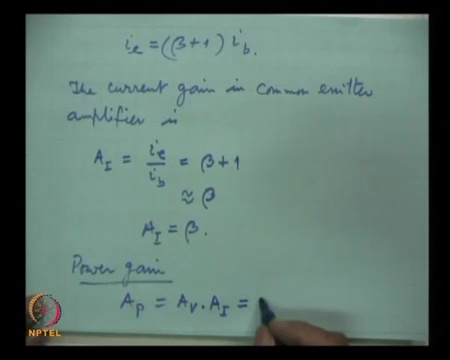 i_e = (β+1) i_b.
The current gain in common emitter
amplifier is
A_I = i_e/i_b = β+1
≈ β
A_I = β.
Power gain
A_p = A_V . A_I =
NPTEL